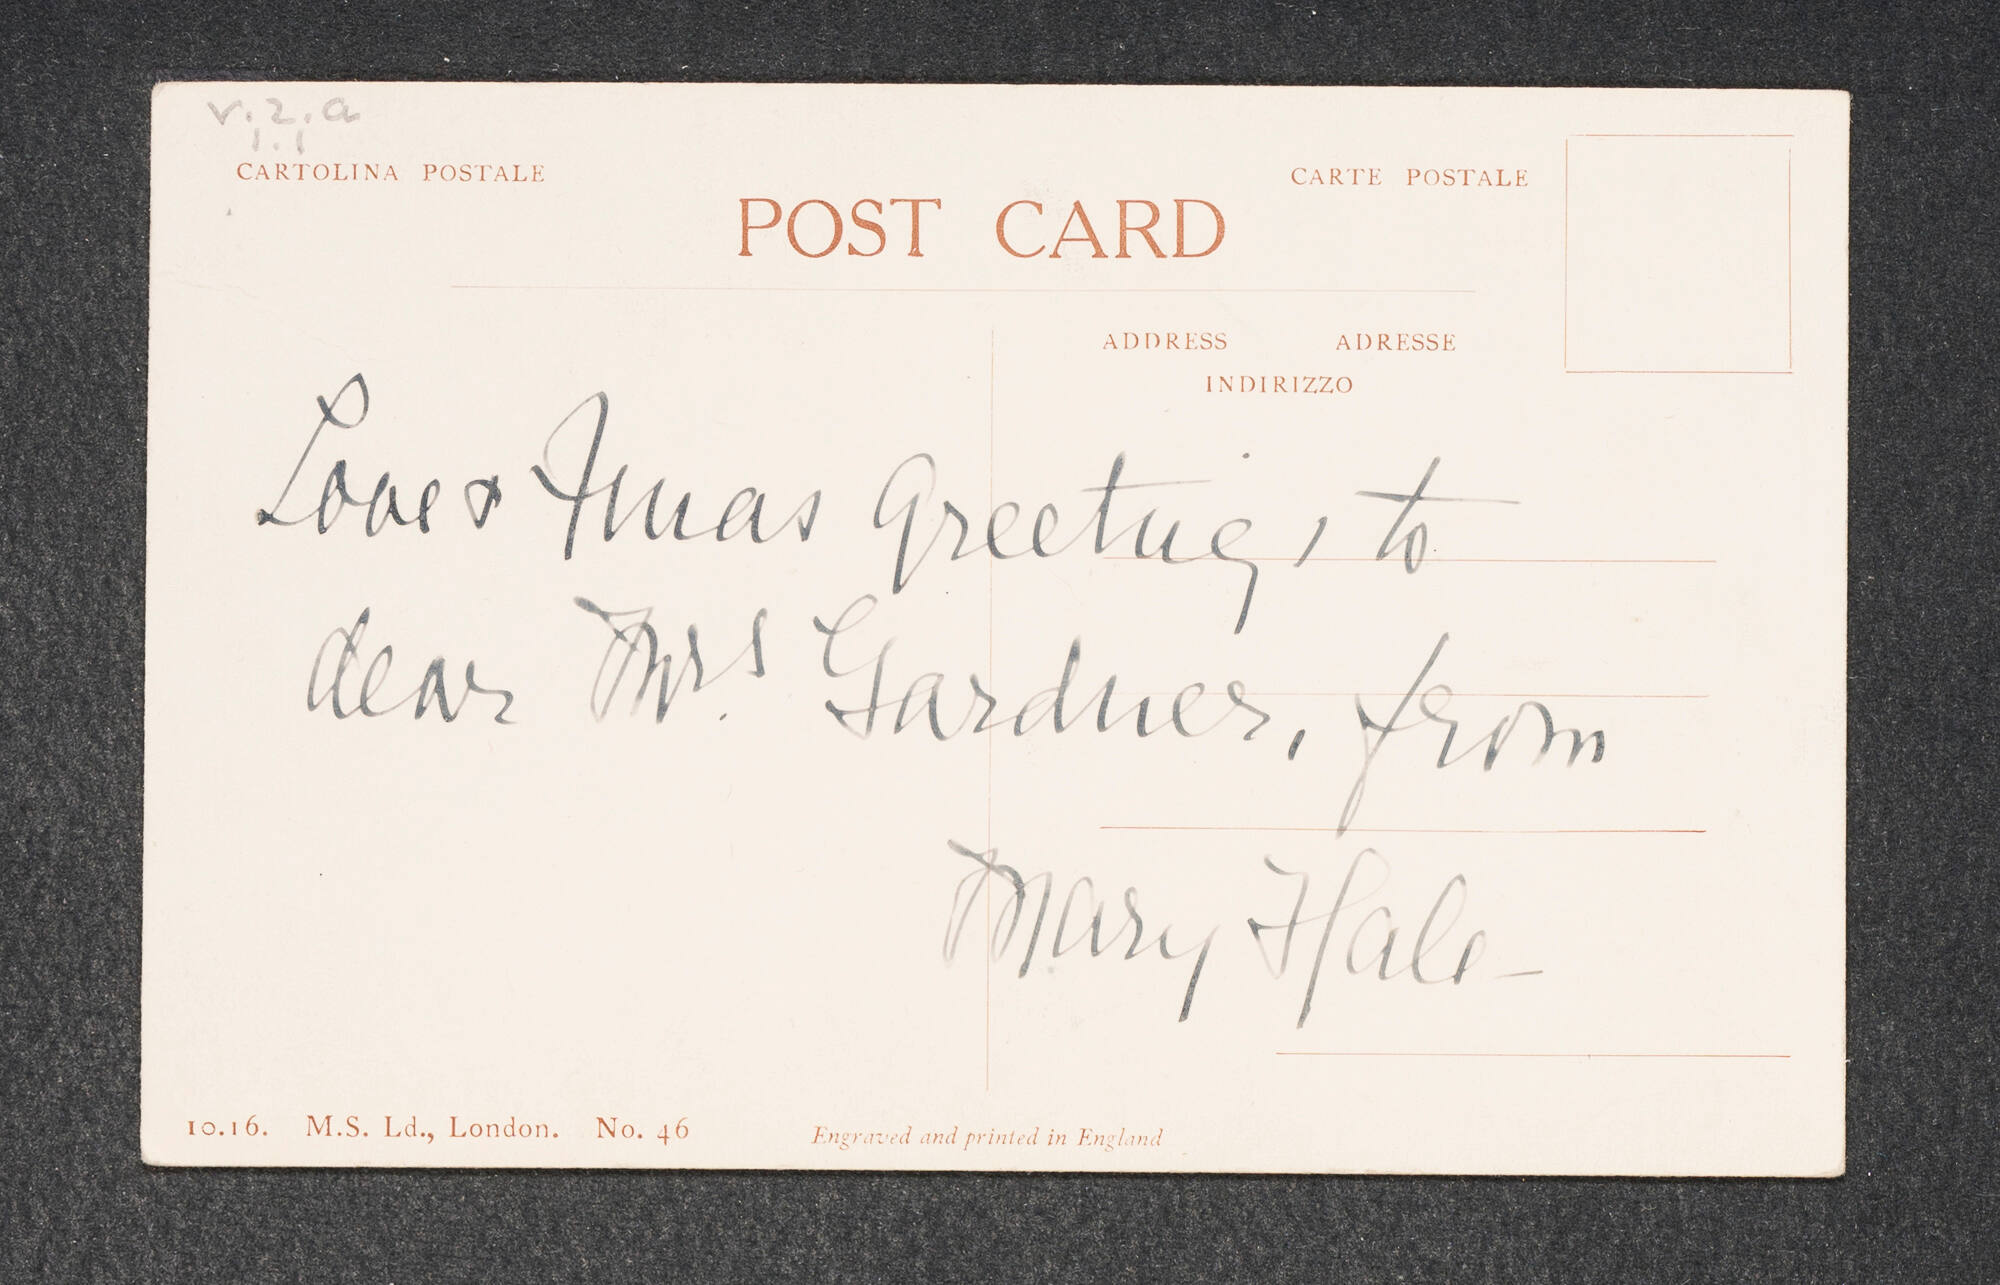 v.2.a
1.1
CARTOLINA POSTALE
CARTE POSTALE
POST CARD
ADDRESS ADRESSE
INDIRIZZO
Love & Xmas greetings to
dear Mrs. Gardner, from
Mary Hale—
10.16. M.S. Ld., London. No. 46 Engraved and printed in England